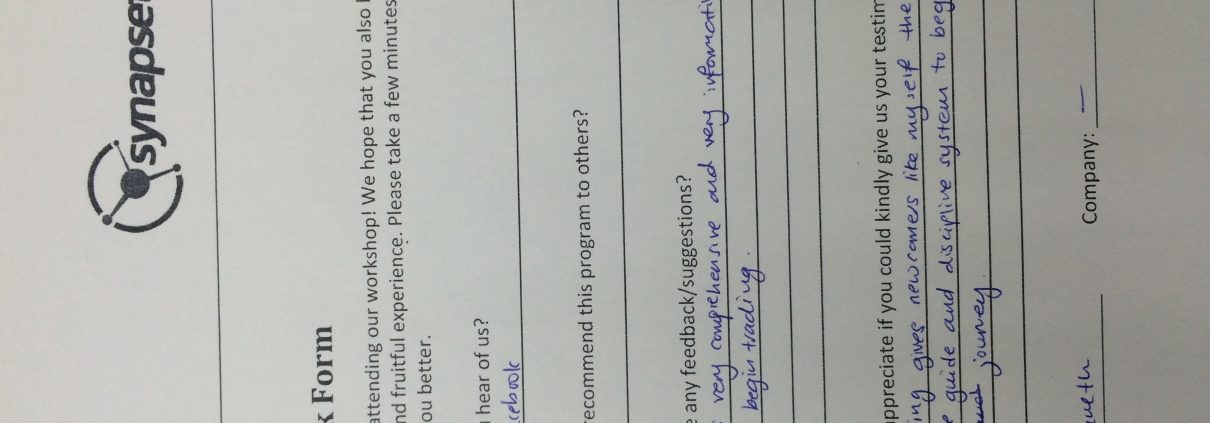 synapse
Form
attending our workshop! We hope that you also
fruitful experience. Please take a few minutes
better.
hear of us?
recommend this program to others?
any feedback/suggestions?
very comprehensive and very
begin trading.
if you could kindly give us your
gives newcomers like myself the
guide and discipline system to
journey
Company: —